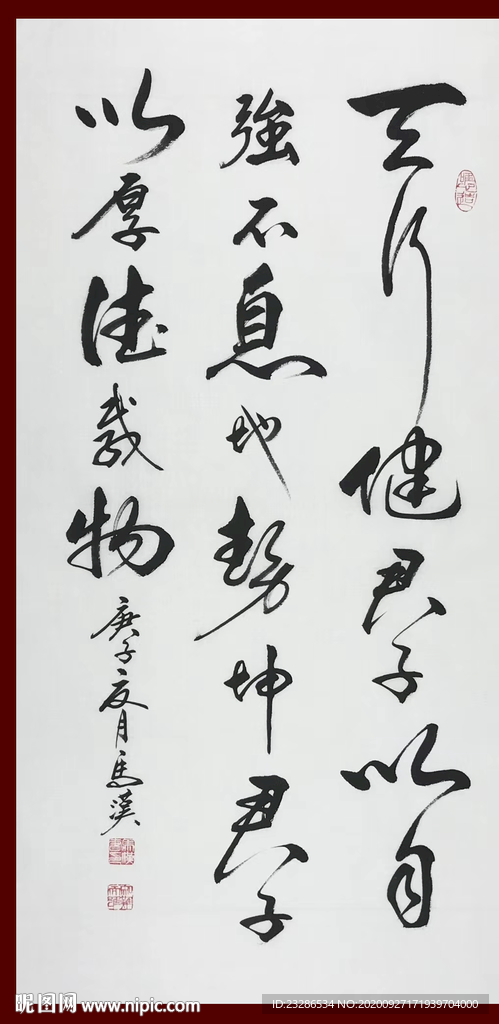 天行健君子以自
強不息地勢坤君子
以厚德載物
庚子夏月馬漢
昵图网 www.nipic.com
ID:23286534 NO:20200927171939704000